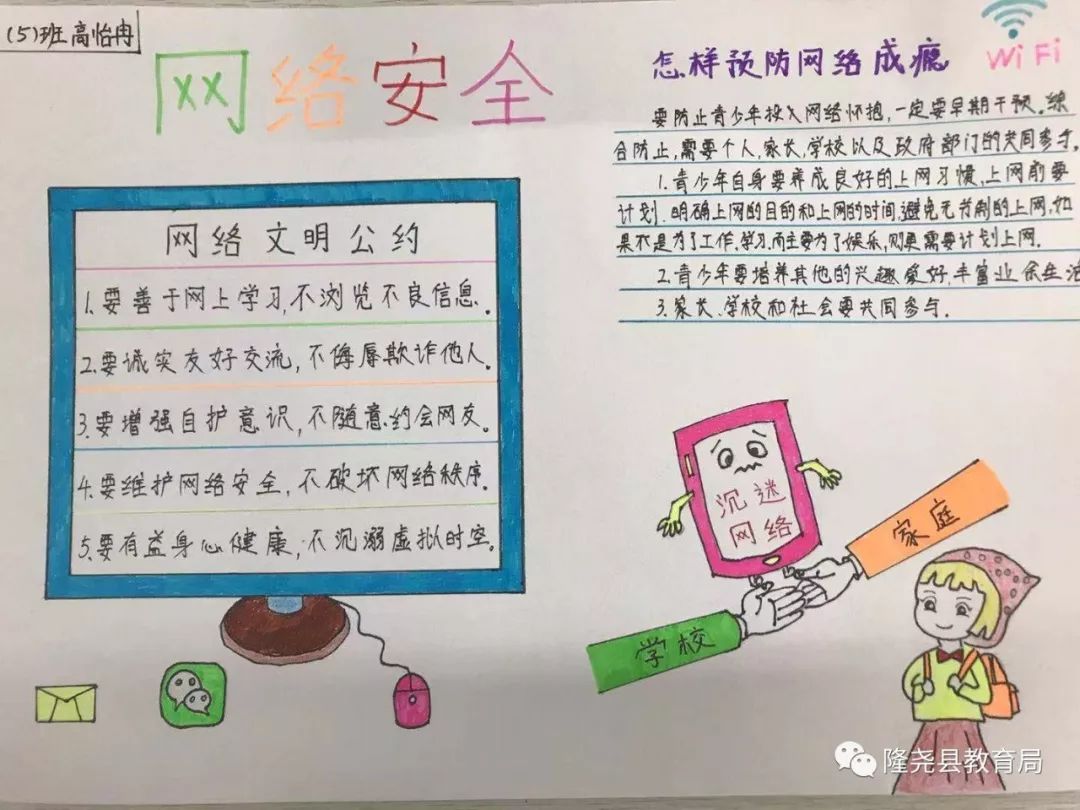 (5)班高怡冉
网络安全
网络文明公约
1.要善于网上学习,不浏览不良信息。
2.要诚实友好交流,不侮辱欺诈他人。
3.要增强自护意识,不随意约会网友。
4.要维护网络安全,不破坏网络秩序。
5.要有益身心健康,不沉溺虚拟时空。
怎样预防网络成瘾
WiFi
要防止青少年投入网络怀抱,一定要早期干预。综
合防止,需要个人,家长,学校以及政府部门的共同参与。
1.青少年自身要养成良好的上网习惯,上网前要
计划.明确上网的目的和上网的时间,避免无节制的上网,如
果不是为了工作.学习.而主要为了娱乐,则更需要计划上网.
2.青少年要培养其他的兴趣爱好,丰富业余生活
3.家长.学校和社会要共同参与.
沉迷
网络
家庭
学校
隆尧县教育局